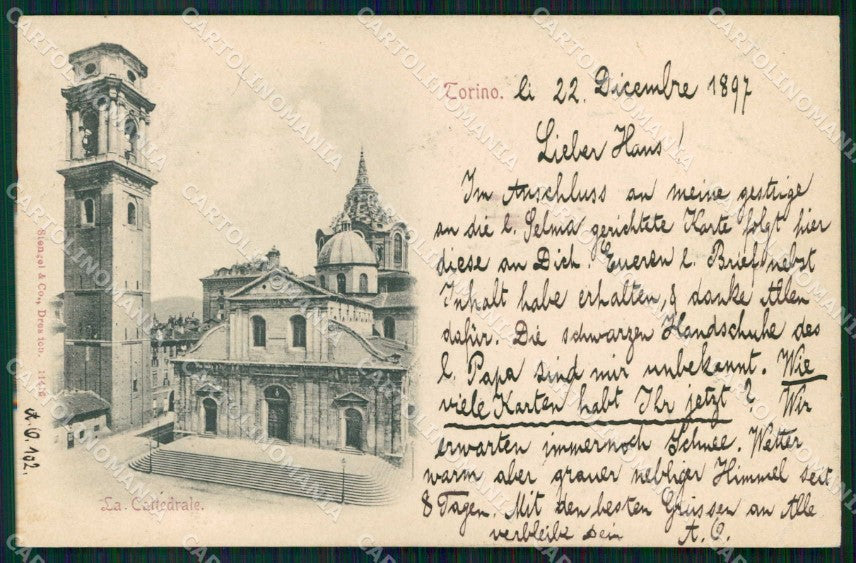 Torino. li 22. Dicembre 1897
Lieber Hans!
Im Anschluss an meine gestrige
an die l. Selma gerichtete Karte folgt hier
diese an Dich. Eueren l. Brief nebst
Inhalt habe erhalten, & danke Allen
dafür. Die schwarzen Handschuhe des
l. Papa sind mir unbekannt. Wie
viele Karten habt Ihr jetzt? Wir
erwarten immernoch Schnee. Wetter
warm aber grauer nebliger Himmel seit
8 Tagen. Mit den besten Grüssen an Alle
verbleibe Dein A. O.
La Cattedrale.
Stengel & Co., Dresden.
A. O. 192.
CARTOLINOMANIA